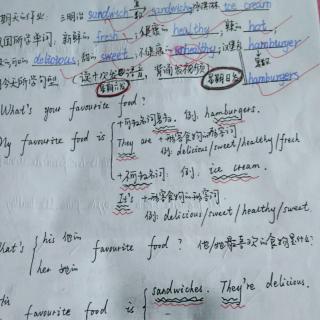 三明治 sandwich 复数 sandwiches 冰淇淋 ice cream
新鲜的 fresh 健康的 healthy 辣的 hot
delicious 甜的 sweet 不健康的 unhealthy 汉堡包 hamburger
复数 hamburgers
今天所学句型 (读十次
星期六 星期日
What's your favourite food?
My favourite food is +可数名词复数. 例: hamburgers.
They are +形容食物的形容词
例: delicious/sweet/healthy/fresh
+不可数名词. 例: ice cream.
It's +形容食物的形容词
例: delicious/sweet/healthy/sweet.
What's his 他的 favourite food? 他/她最喜欢的食物是什么?
her 她的
favourite food is sandwiches. They're delicious.